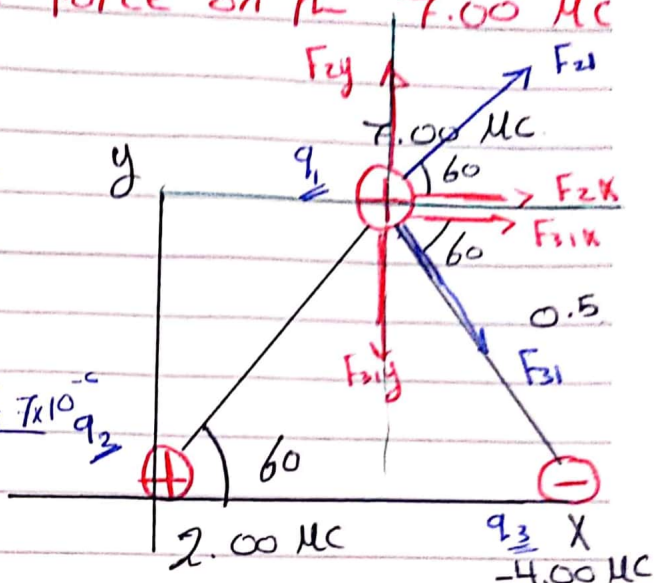 force on 7.00 MC
F2y F21
7.00 MC
y q1 60 F2x
F31x
60
0.5
F31y F31
7x10
q2 60
2.00 MC q3 X
-4.00 MC